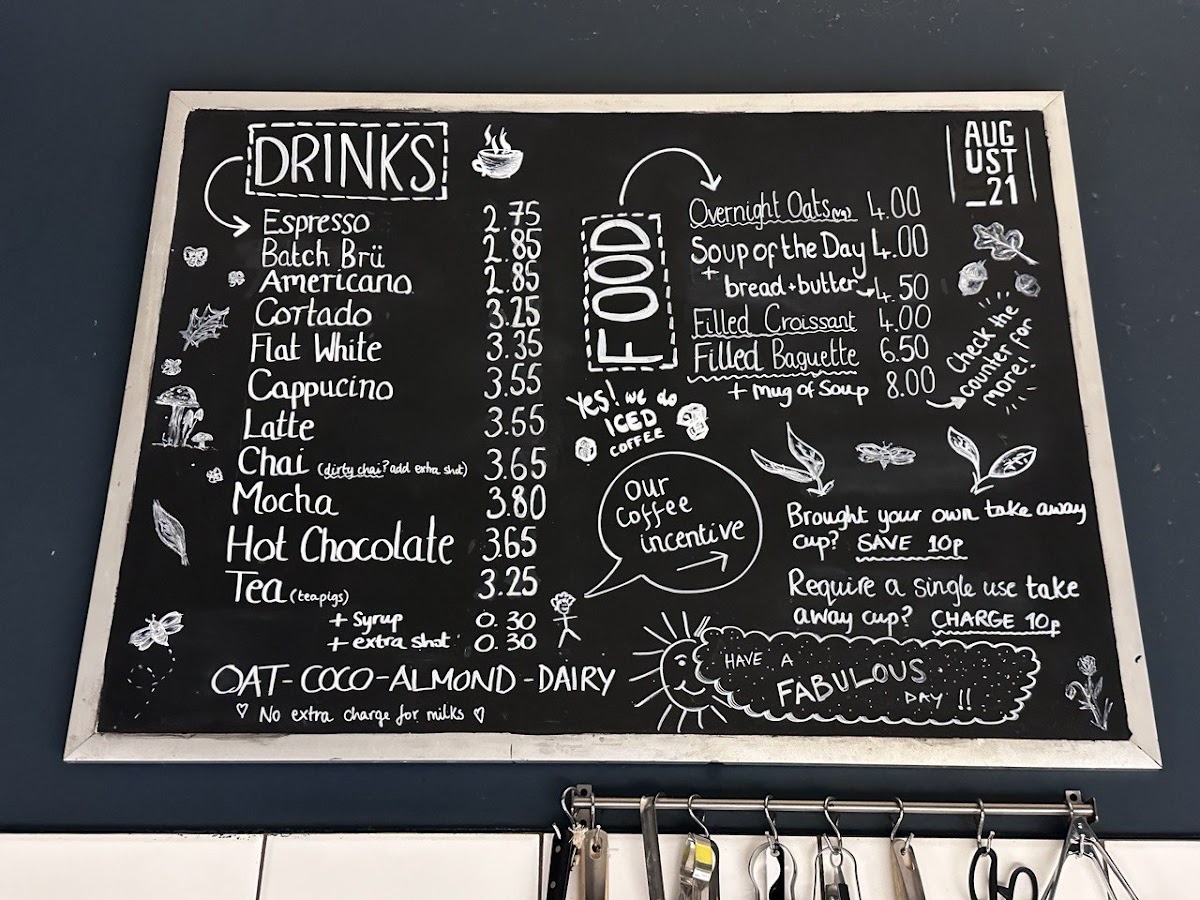 DRINKS
Espresso 2.75
Batch Brü 2.85
Americano 2.85
Cortado 3.25
Flat White 3.35
Cappucino 3.55
Latte 3.55
Chai (dirty chai? add extra shot) 3.65
Mocha 3.80
Hot Chocolate 3.65
Tea (teapigs) 3.25
+ Syrup 0.30
+ extra shot 0.30
OAT-COCO-ALMOND-DAIRY
♡ No extra charge for milks ♡
FOOD
Overnight Oats (vg) 4.00
Soup of the Day 4.00
+ bread + butter 4.50
Filled Croissant 4.00
Filled Baguette 6.50
+ mug of Soup 8.00
AUG
UST
_21
Check the
counter for
more!
Yes! we do
ICED
COFFEE
Our
Coffee
incentive
Brought your own take away
cup? SAVE 10p
Require a single use take
away cup? CHARGE 10p
HAVE A
FABULOUS
DAY !!